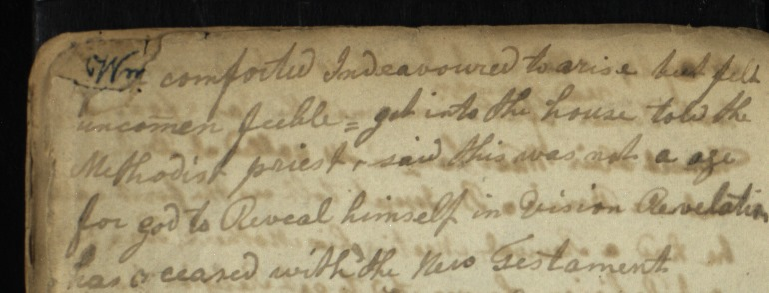 Wm comforted Indeavoured to arise but felt
uncomen feeble = got into the house told the
Methodist priest, said this was not a age
for god to Reveal himself in Vision Revelation
has ceased with the New Testament